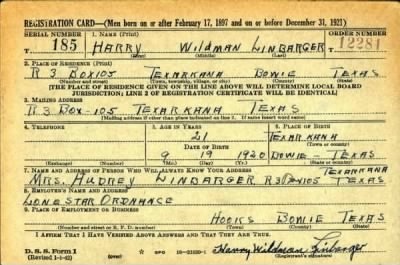 REGISTRATION CARD—(Men born on or after February 17, 1897 and on or before December 31, 1921)
SERIAL NUMBER 1. NAME (Print) ORDER NUMBER
185 HARRY WILDMAN LINBARGER 12281
(First) (Middle) (Last)
2. PLACE OF RESIDENCE (Print)
R 3 BOX 105 TEXARKANA BOWIE TEXAS
(Number and street) (Town, township, village, or city) (County) (State)
[THE PLACE OF RESIDENCE GIVEN ON THE LINE ABOVE WILL DETERMINE LOCAL BOARD
JURISDICTION; LINE 2 OF REGISTRATION CERTIFICATE WILL BE IDENTICAL]
3. MAILING ADDRESS
R 3 BOX-105 TEXARKANA TEXAS
[Mailing address if other than place indicated on line 2. If same insert word same]
4. TELEPHONE 5. AGE IN YEARS 6. PLACE OF BIRTH
21 TEXARKANA
DATE OF BIRTH (Town or county)
9 19 1920 BOWIE - TEXAS
(Exchange) (Number) (Mo.) (Day) (Yr.) (State or country)
7. NAME AND ADDRESS OF PERSON WHO WILL ALWAYS KNOW YOUR ADDRESS TEXARKANA
MRS. AUDREY LINBARGER R3 BOX105 TEXAS
8. EMPLOYER'S NAME AND ADDRESS
LONE STAR ORDNANCE
9. PLACE OF EMPLOYMENT OR BUSINESS
HOOKS BOWIE TEXAS
(Number and street or R. F. D. number) (Town) (County) (State)
I AFFIRM THAT I HAVE VERIFIED ABOVE ANSWERS AND THAT THEY ARE TRUE.
D. S. S. Form 1
(Revised 1-1-42) (over) GPO 16—21630-1 Harry Wildman Linbarger
(Registrant's signature)